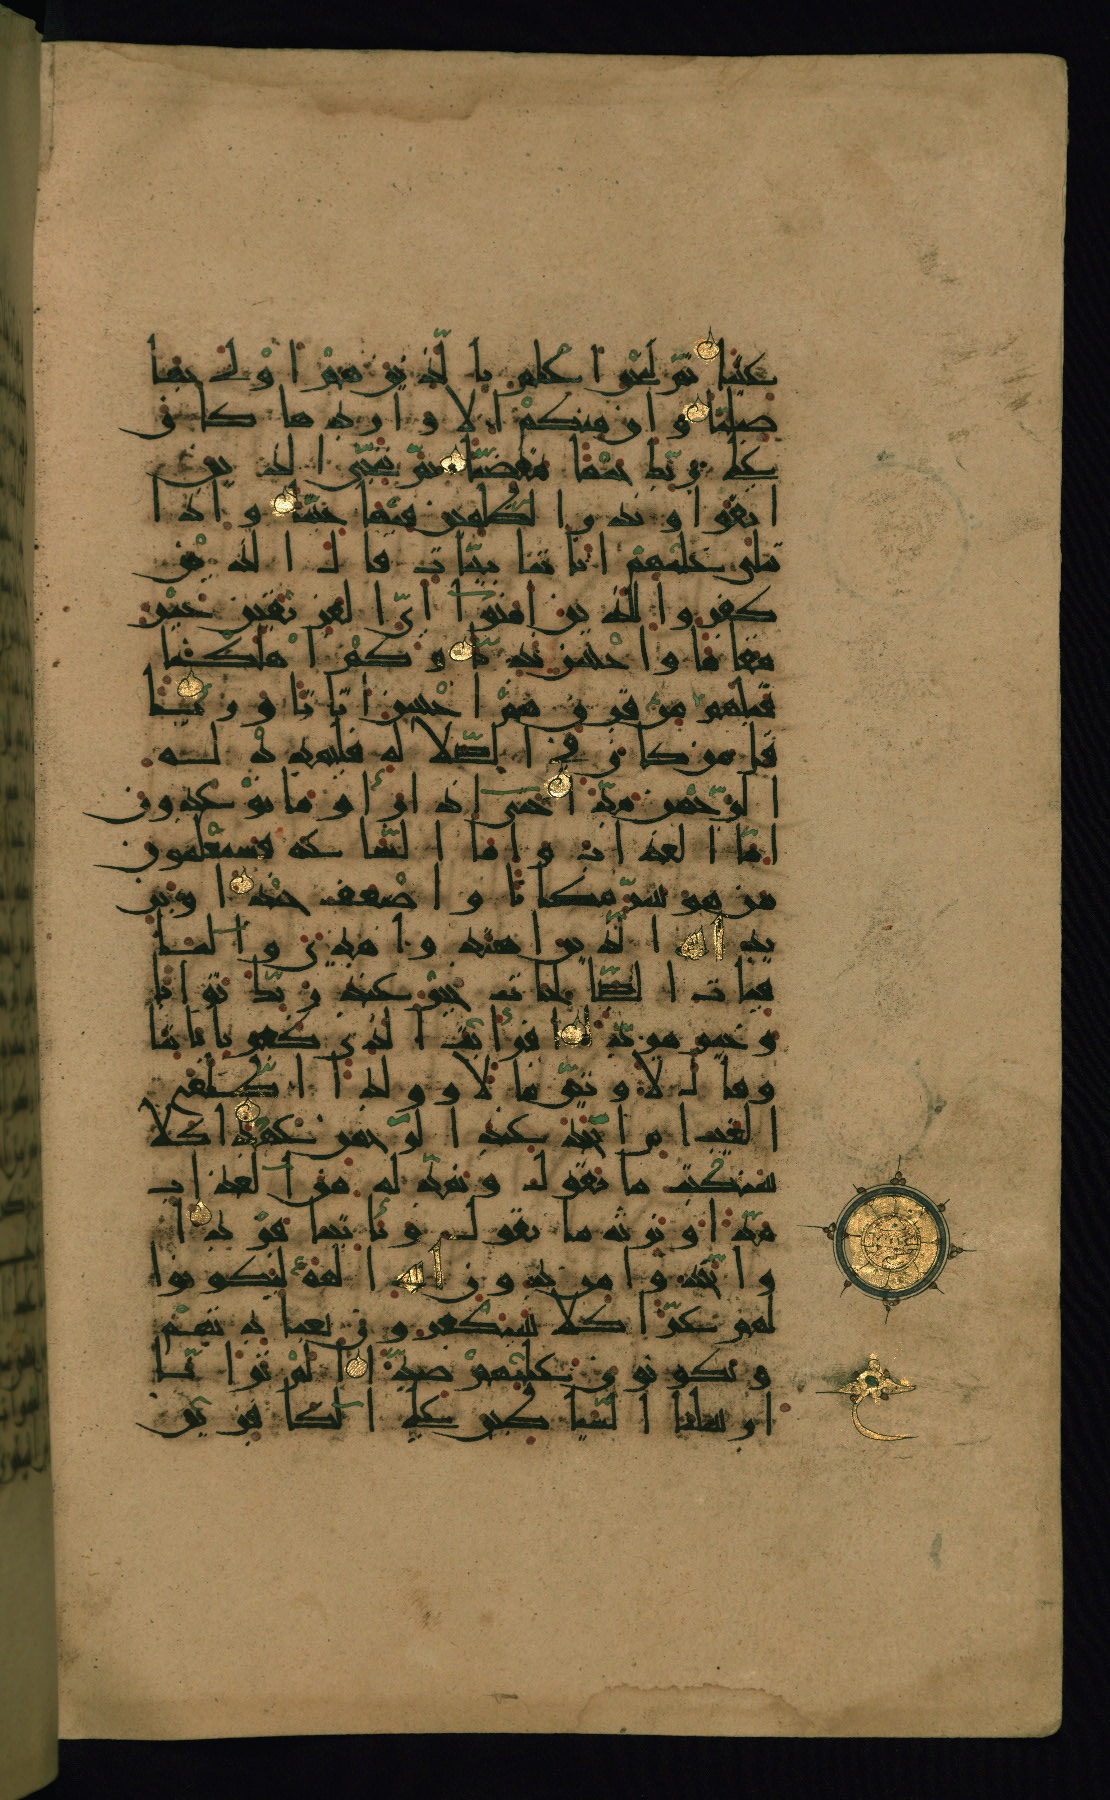 عتيا ثم لنحن اعلم بالذين هم اولى بها
صليا وان منكم الا واردها كان
على ربك حتما مقضيا ثم ننجي الذين
اتقوا ونذر الظلمين فيها جثيا واذا
تتلى عليهم اياتنا بينات قال الذين
كفروا للذين امنوا اي الفريقين خير
مقاما واحسن نديا وكم اهلكنا
قبلهم من قرن هم احسن اثاثا ورئيا
قل من كان في الضلالة فليمدد له
الرحمن مدا حتى اذا راوا ما يوعدون
اما العذاب واما الساعة فسيعلمون
من هو شر مكانا واضعف جندا ويز
يد الله الذين اهتدوا هدى والبا
قيات الصالحات خير عند ربك ثوابا
وخير مردا افرايت الذي كفر باياتنا
وقال لاوتين مالا وولدا اطلع
الغيب ام اتخذ عند الرحمن عهدا كلا
سنكتب ما يقول ونمد له من العذاب
مدا ونرثه ما يقول وياتينا فردا
واتخذوا من دون الله الهة ليكونوا
لهم عزا كلا سيكفرون بعبادتهم
ويكونون عليهم ضدا الم تر انا
ارسلنا الشياطين على الكافرين